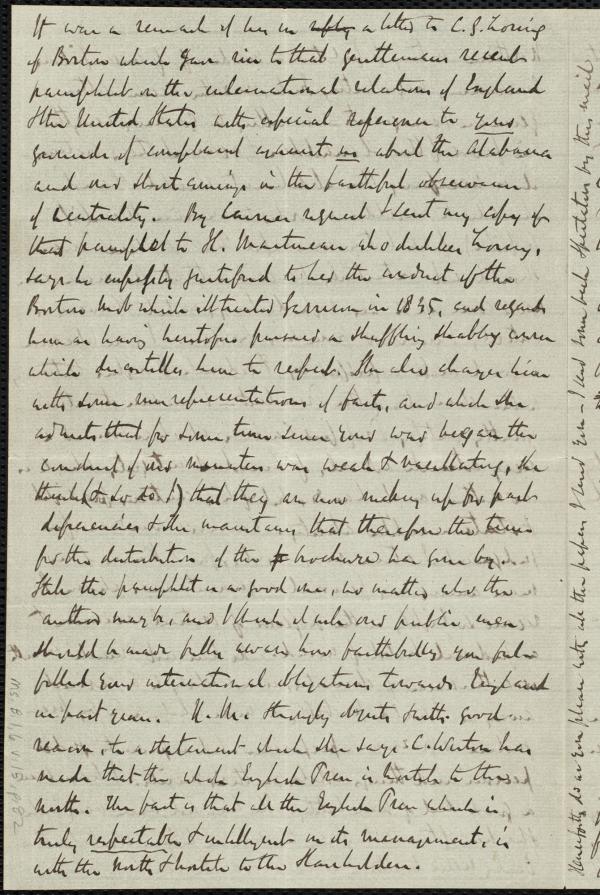 It was a remark of hers in reply a letter to C. G. Loring
of Boston which gave rise to that gentleman's recent
pamphlet on the international relations of England
& the United States with especial reference to yours
grounds of complaint against us about the Alabama
and our short comings in the faithful observance
of Neutrality. By Garrison's request I sent my copy of
that pamphlet to H. Martineau who dislikes Loring,
says he expressly justified to her the conduct of the
Boston mob which illtreated Garrison in 1835, and regards
him as having heretofore pursued a shuffling shabby course
which disentitles him to respect. She also charges him
with some misrepresentations of facts, and while she
admits that for some time since your war began the
conduct of our ministers was weak & vacillating, she
thinks (& so do I) that they are now making up for past
deficiencies & she maintains that therefore the time
for the distribution of the brochure has gone by.
Still the pamphlet is a good one, no matter who the
author may be, and I think it well our public men
should be made fully aware how faithfully you ful-
filled your international obligations towards England
in past years. H. M. strongly objects with good
reason, to a statement which she says C. Weston has
made that the whole English Press is hostile to the
North. The fact is that all the English Press which is
truly respectable & intelligent in its management, is
with the North & hostile to the Slaveholders.
Henceforth do as you please with all the papers I send you - I send some back Spectators by this mail
Ms. B. 1. 6 v.